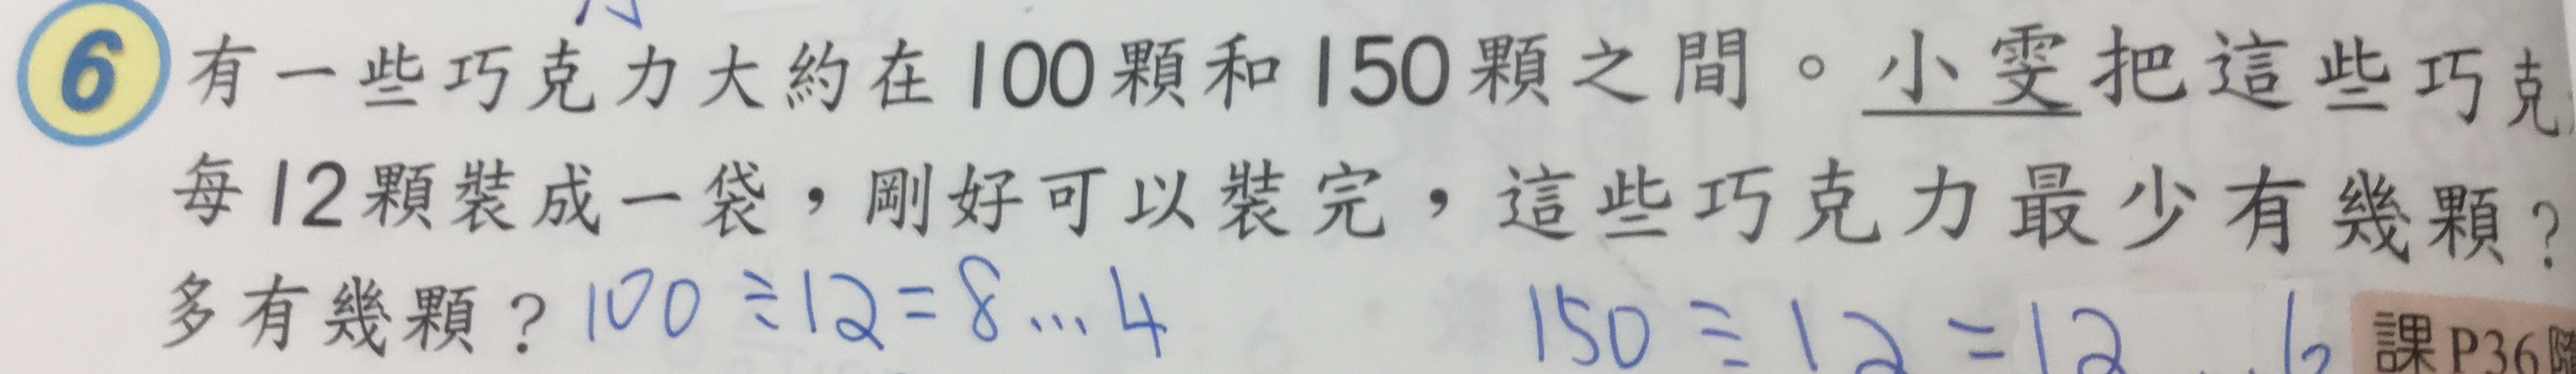 6 有一些巧克力大約在100顆和150顆之間。小雯把這些巧克
每12顆裝成一袋,剛好可以裝完,這些巧克力最少有幾顆?
多有幾顆? 100÷12=8...4 150÷12=12...6 課P36隨